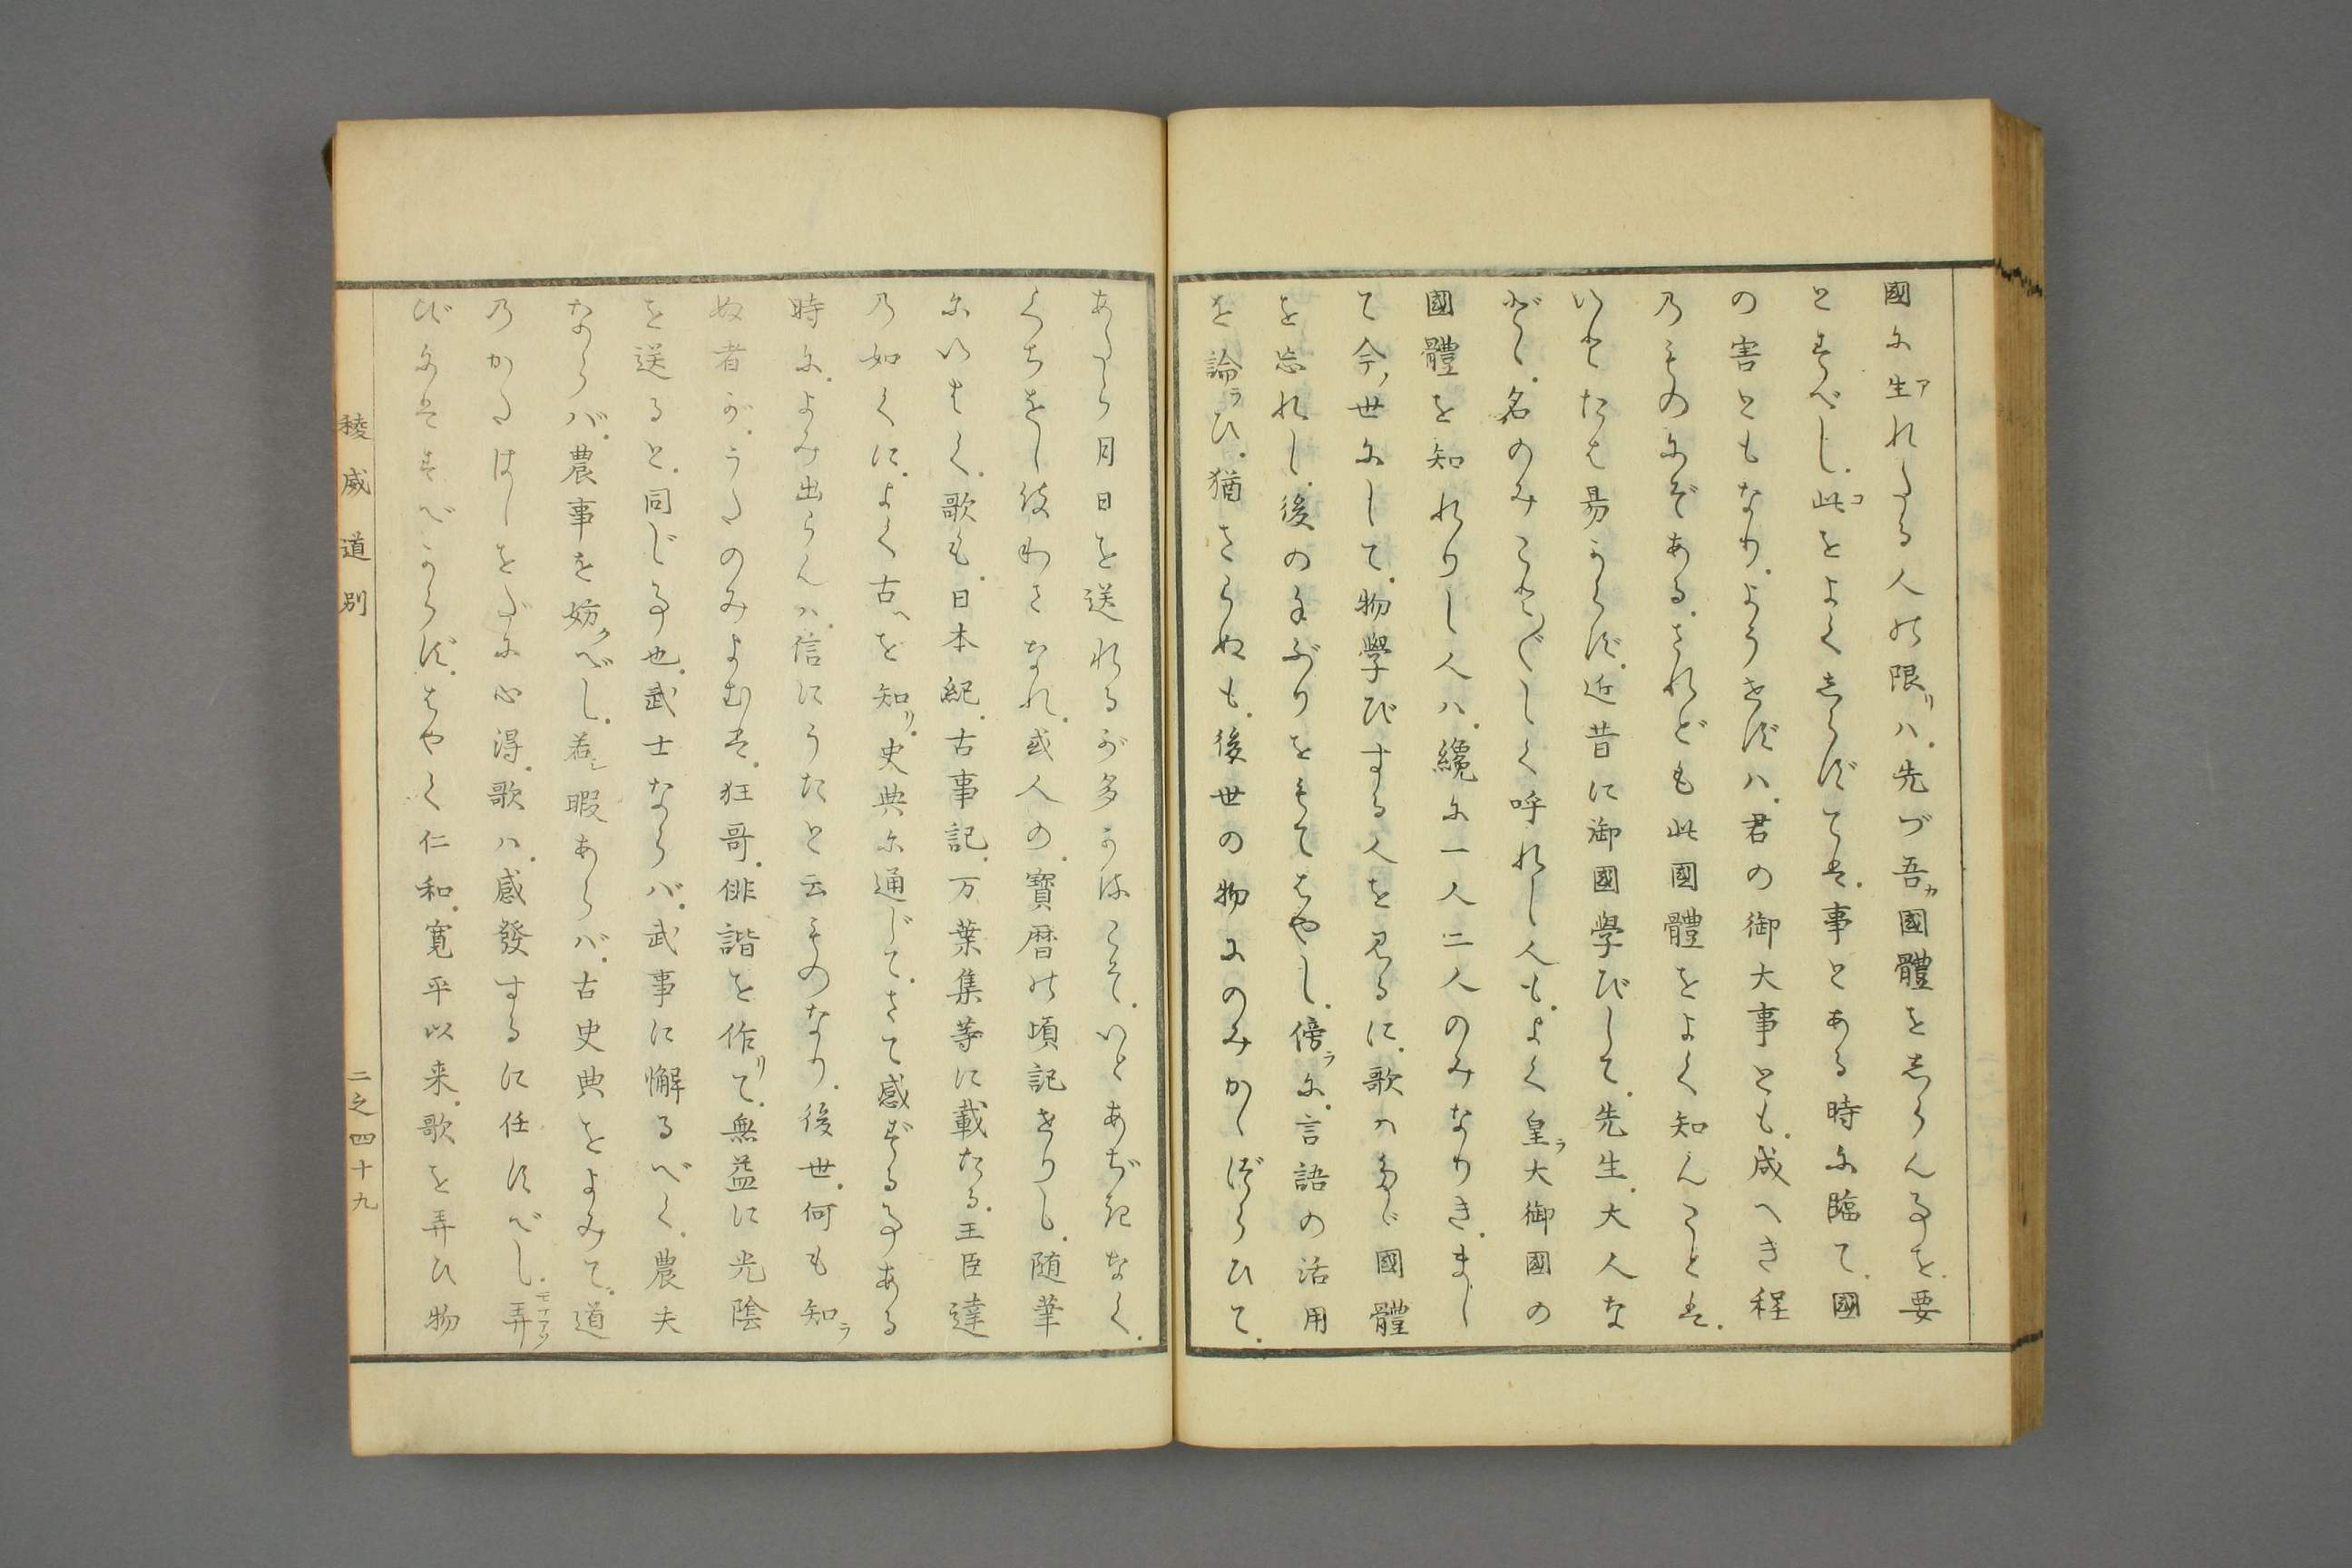 國に生れたる人の限リハ先づ吾カ國體をしらん事を要
とすべし此をよくしらずては事とある時に臨て國
の害ともなりようせずハ君の御大事とも成へき程
のものにぞあるされども此國體をよく知んことは
いとたは易からず近昔に御國學びして先生大人な
ど名のみこと〴〵しく呼れし人もよく皇ラ大御國の
國體を知れりし人ハ纔に一人二人のみなりきまし
て今ノ世にして物學びする人を見るに歌ハまづ國體
を忘れし後のてぶりをもてはやし傍ラに言語の活用
を論ラひ猶さらぬも後世の物にのみかゝづらひて
あたら月日を送れるが多かるこそいとあぢきなく
くちをしき わざなれ或人の寶暦の頃記せりし随筆
にいはく歌も日本紀古事記万葉集等に載たる王臣達
の如くによく古ヘを知リ史典に通じてさて感ずる事ある
時によみ出らんハ信にうたと云ものなり後世何も知ラ
ぬ者がうたのみよむは狂哥俳諧を作リて無益に光陰
を送ると同じ事也武士ならバ武事に懈るべく農夫
ならバ農事を妨クべし若シ暇あらバ古史典をよみて道
のかたはしをだに心得歌ハ感發するに任すべし弄モテアソ
びにはすべからずはやく仁和寛平以来歌を弄ひ物
稜威道別
二之四十九